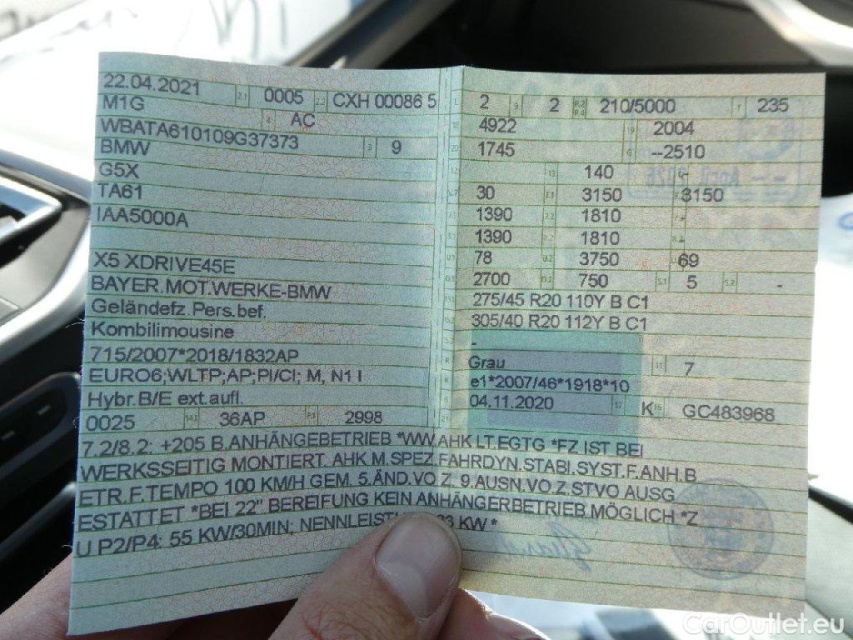 22.04.2021 2.1 0005 2.2 CXH 00086 5
M1G AC
WBATA610109G37373
BMW 3 9
G5X
TA61
IAA5000A
X5 XDRIVE45E
BAYER.MOT.WERKE-BMW
Geländefz.Pers.bef.
Kombilimousine
715/2007*2018/1832AP
EURO6;WLTP;AP;PI/CI; M, N1 I
Hybr.B/E ext.aufl.
0025 36AP 2998
2 2 210/5000 235
4922 2004
1745 --2510
140
30 3150 3150
1390 1810
1390 1810
78 3750 69
2700 750 5 -
275/45 R20 110Y B C1
305/40 R20 112Y B C1
-
Grau 7
e1*2007/46*1918*10
04.11.2020 K GC483968
7.2/8.2: +205 B.ANHÄNGEBETRIEB *WW.AHK LT.EGTG *FZ IST BEI
WERKSSEITIG MONTIERT. AHK M.SPEZ.FAHRDYN.STABI.SYST.F.ANH.B
ETR.F.TEMPO 100 KM/H GEM. 5.ÄND.VO Z. 9.AUSN.VO.Z.STVO AUSG
ESTATTET *BEI 22" BEREIFUNG KEIN ANHÄNGERBETRIEB MÖGLICH *Z
U P2/P4: 55 KW/30MIN; NENNLEIST 3 KW *
CarOutlet.eu